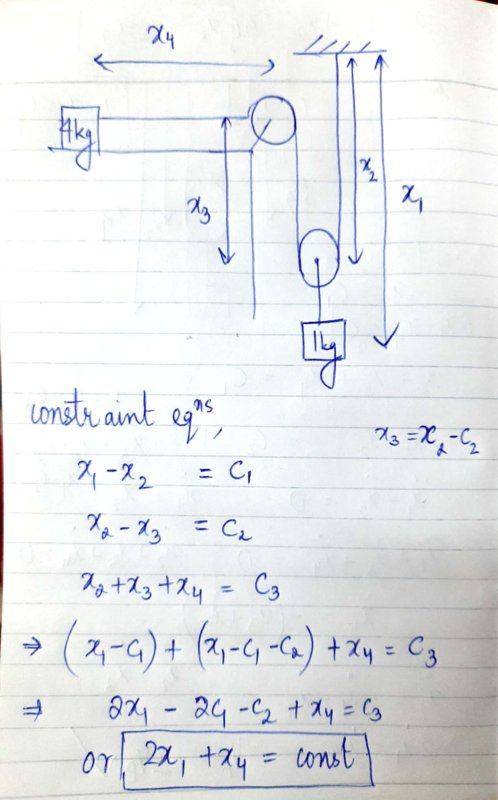 x₄
4kg
x₃
x₂
x₁
1kg
constraint eqⁿˢ,
x₃ = x₂ - C₂
x₁ - x₂ = C₁
x₂ - x₃ = C₂
x₂ + x₃ + x₄ = C₃
⇒ (x₁ - C₁) + (x₁ - C₁ - C₂) + x₄ = C₃
⇒ 2x₁ - 2C₁ - C₂ + x₄ = C₃
or, 2x₁ + x₄ = const